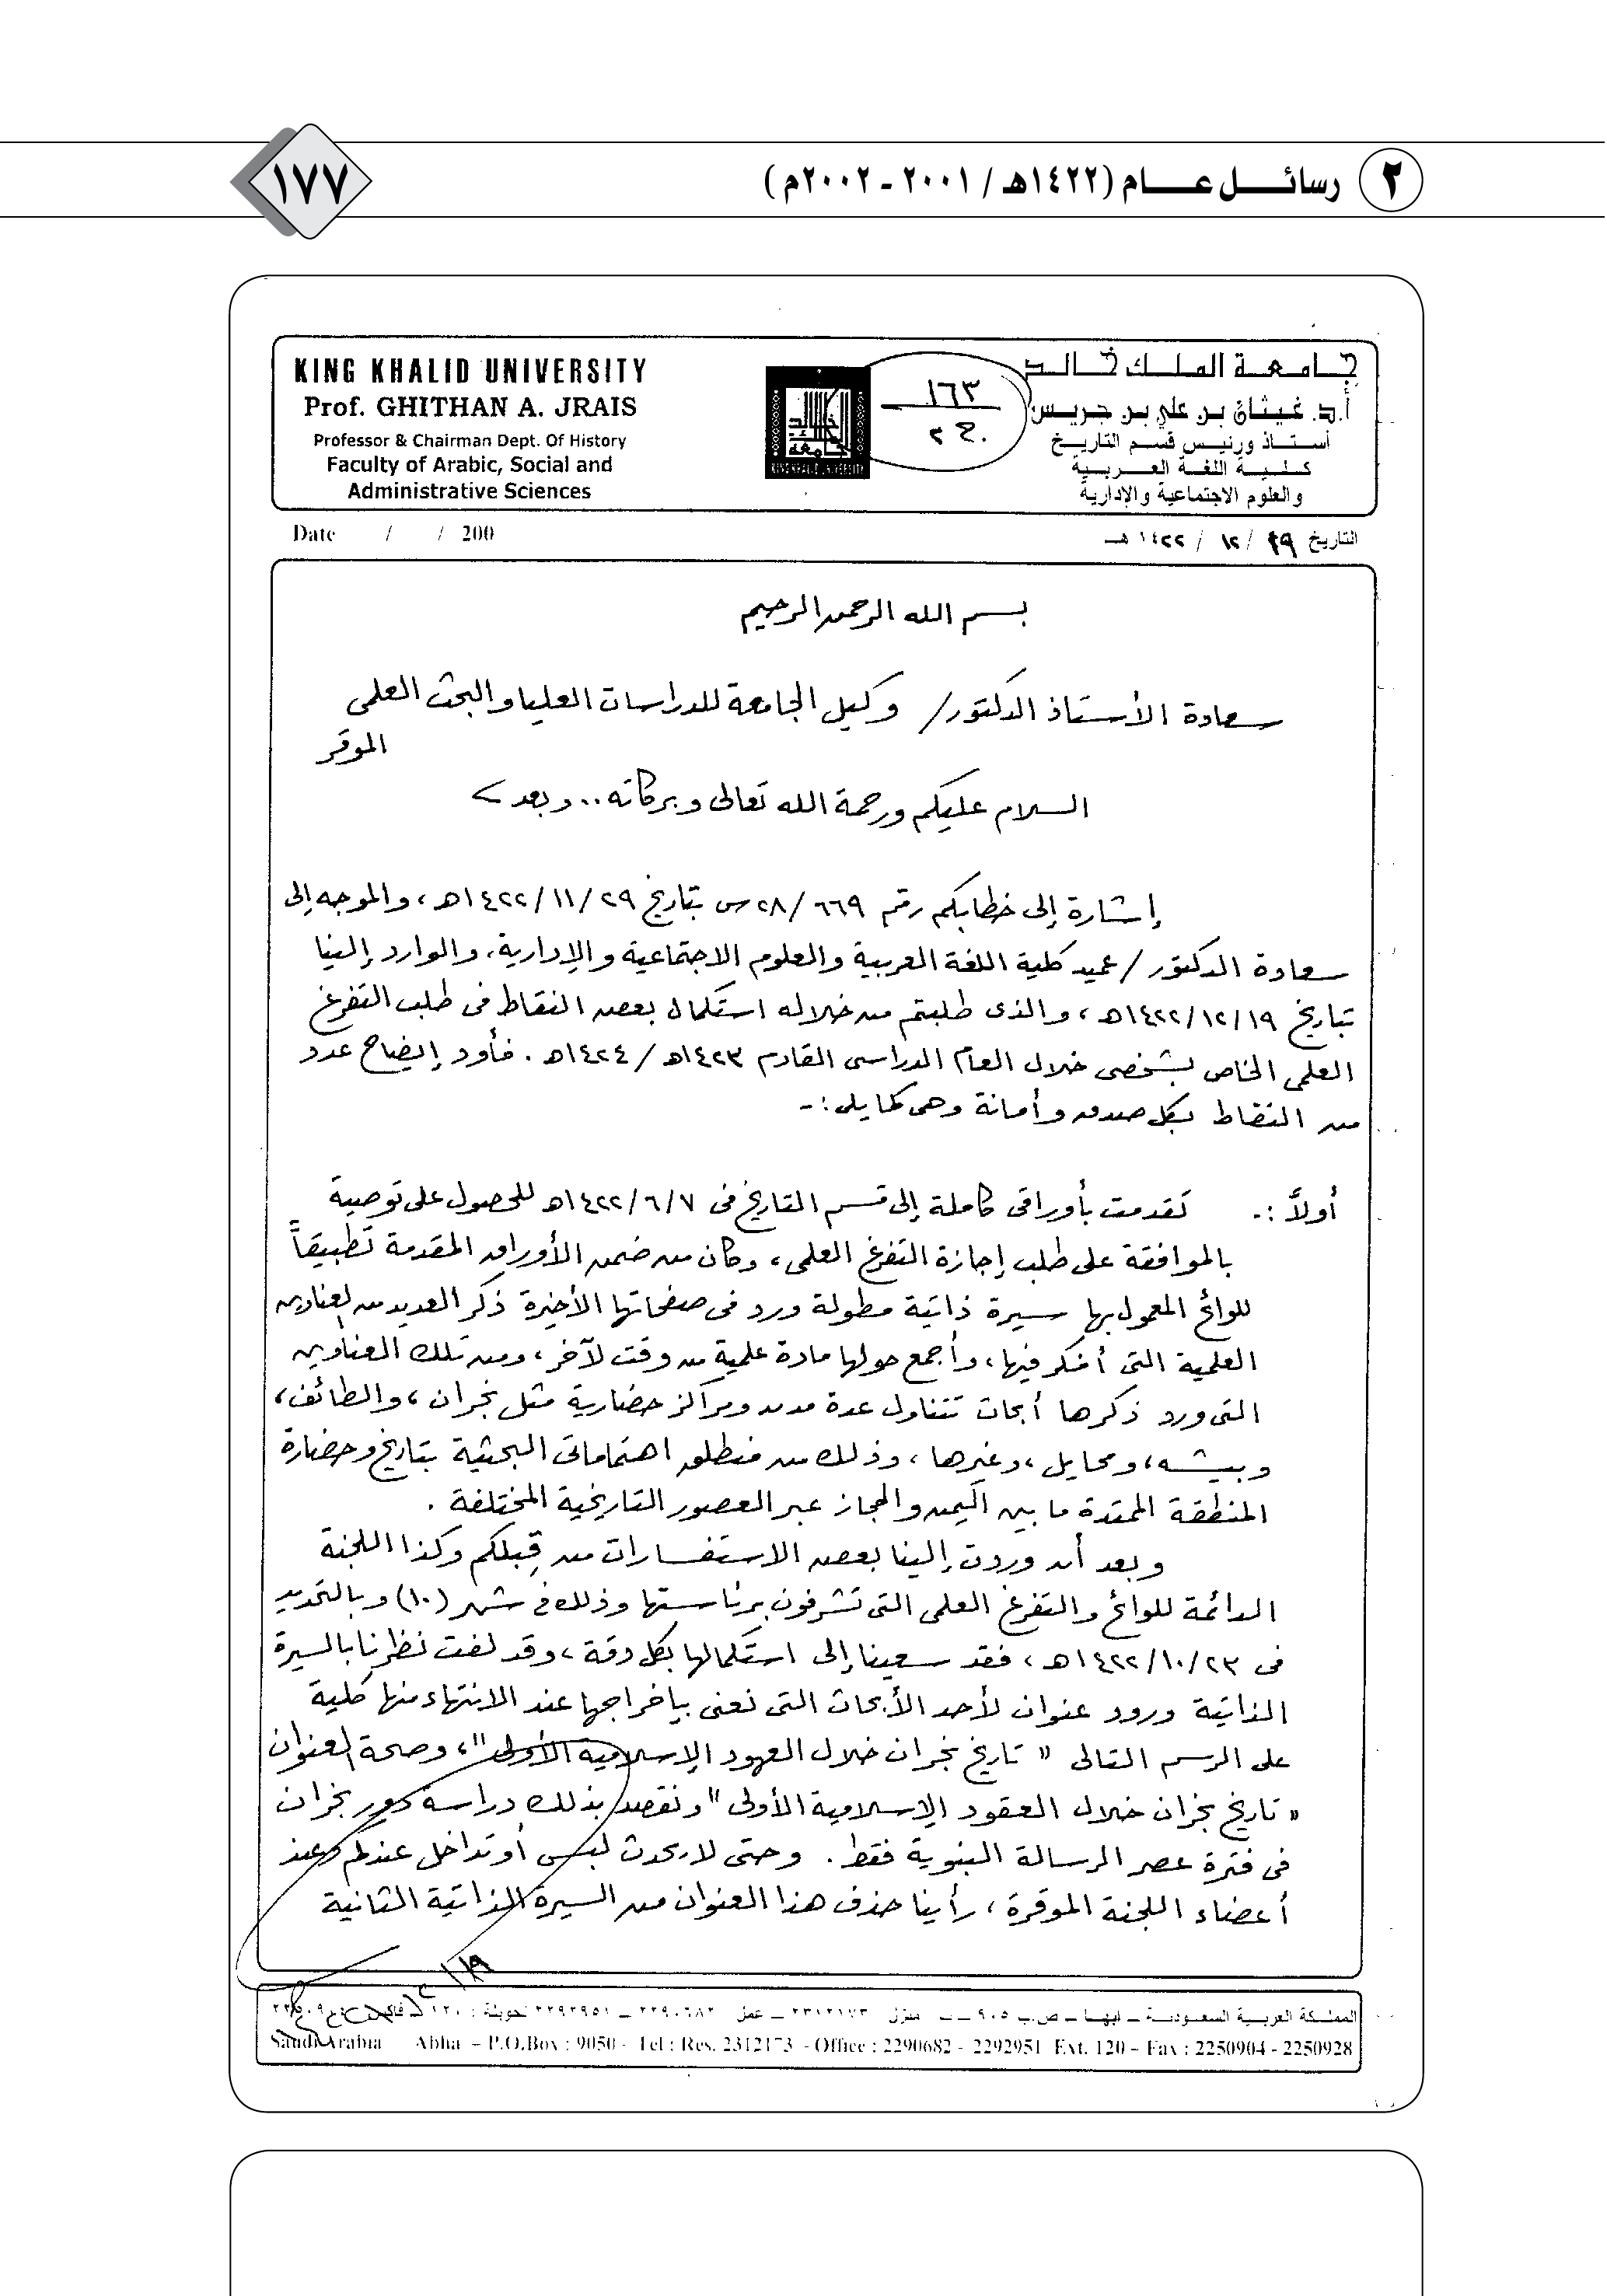 ٢ رسائل عام (١٤٢٢هـ / ٢٠٠١ - ٢٠٠٢م)
١٧٧
جامعة الملك خالد
أ.د. غيثان بن علي بن جريس
أستاذ ورئيس قسم التاريخ
كلية اللغة العربية
والعلوم الاجتماعية والإدارية
١٦٣
KING KHALID UNIVERSITY
Prof. GHITHAN A. JRAIS
Professor & Chairman Dept. Of History
Faculty of Arabic, Social and
Administrative Sciences
التاريخ ٢٩ / ١٢ / ١٤٢٢هـ
Date / / 200
بسم الله الرحمن الرحيم
سعادة الأستاذ الدكتور / وكيل الجامعة للدراسات العليا والبحث العلمى
الموقر
السلام عليكم ورحمة الله تعالى وبركاته .. وبعد
إشارة إلى خطابكم رقم ٦٦٩ / ٢٨ س بتاريخ ٢٩ / ١١ / ١٤٢٢هـ ، والموجه إلى
سعادة الدكتور / عميد كلية اللغة العربية والعلوم الاجتماعية والإدارية، والوارد إلينا
بتاريخ ١٩ / ١٢ / ١٤٢٢هـ ، والذى طلبتم من خلاله استكمال بعض النقاط فى طلب التفرغ
العلمى الخاص بشخصى خلال العام الدراسى القادم ١٤٢٣هـ / ١٤٢٤هـ . فأود إيضاح عدد
من النقاط بكل صدق وأمانة وهى كما يلى :-
أولاً :- تقدمت بأوراقى كاملة إلى قسم التاريخ فى ٧ / ٦ / ١٤٢٢هـ للحصول على توصية
بالموافقة على طلب إجازة التفرغ العلمى ، وكان من ضمن الأوراق المقدمة تطبيقاً
للوائح المعمول بها سيرة ذاتية مطولة ورد فى صفحاتها الأخيرة ذكر العديد من العناوين
العلمية التى أفكر فيها ، وأجمع حولها مادة علمية من وقت لآخر ، ومن تلك العناوين
التى ورد ذكرها أبحاث تتناول عدة مدن ومراكز حضارية مثل نجران ، والطائف ،
وبيشه ، ومحايل ، وغيرها ، وذلك من منطلق اهتماماتى البحثية بتاريخ وحضارة
المنطقة الممتدة ما بين اليمن والحجاز عبر العصور التاريخية المختلفة .
وبعد أن وردت إلينا بعض الاستفسارات من قِبلكم وكذا اللجنة
الدائمة للوائح والتفرغ العلمى التى تشرفون برئاستها وذلك فى شهر (١٠) وبالتحديد
فى ٢٣ / ١٠ / ١٤٢٢هـ ، فقد سعينا إلى استكمالها بكل دقة ، وقد لفت نظرنا بالسيرة
الذاتية ورود عنوان لأحد الأبحاث التى نعنى بإخراجها عند الانتهاء منها كلية
على الرسم التالى " تاريخ نجران خلال العهود الإسلامية الأولى " ، وصحة العنوان
" تاريخ نجران خلال العقود الإسلامية الأولى " ونقصد بذلك دراسة دور نجران
فى فترة عصر الرسالة النبوية فقط . وحتى لا يحدث لبس أو تداخل عندكم وعند
أعضاء اللجنة الموقرة ، رأينا حذف هذا العنوان من السيرة الذاتية الثانية
المملكة العربية السعودية - أبها - ص.ب ٩٠٥٠ - ت منزل ٢٣١٢١٧٣ - عمل ٢٢٩٠٦٨٢ - ٢٢٩٢٩٥١ تحويلة : ١٢٠
Saudi Arabia Abha - P.O.Box : 9050 - Tel : Res. 2312173 - Office : 2290682 - 2292951 Ext. 120 - Fax : 2250904 - 2250928